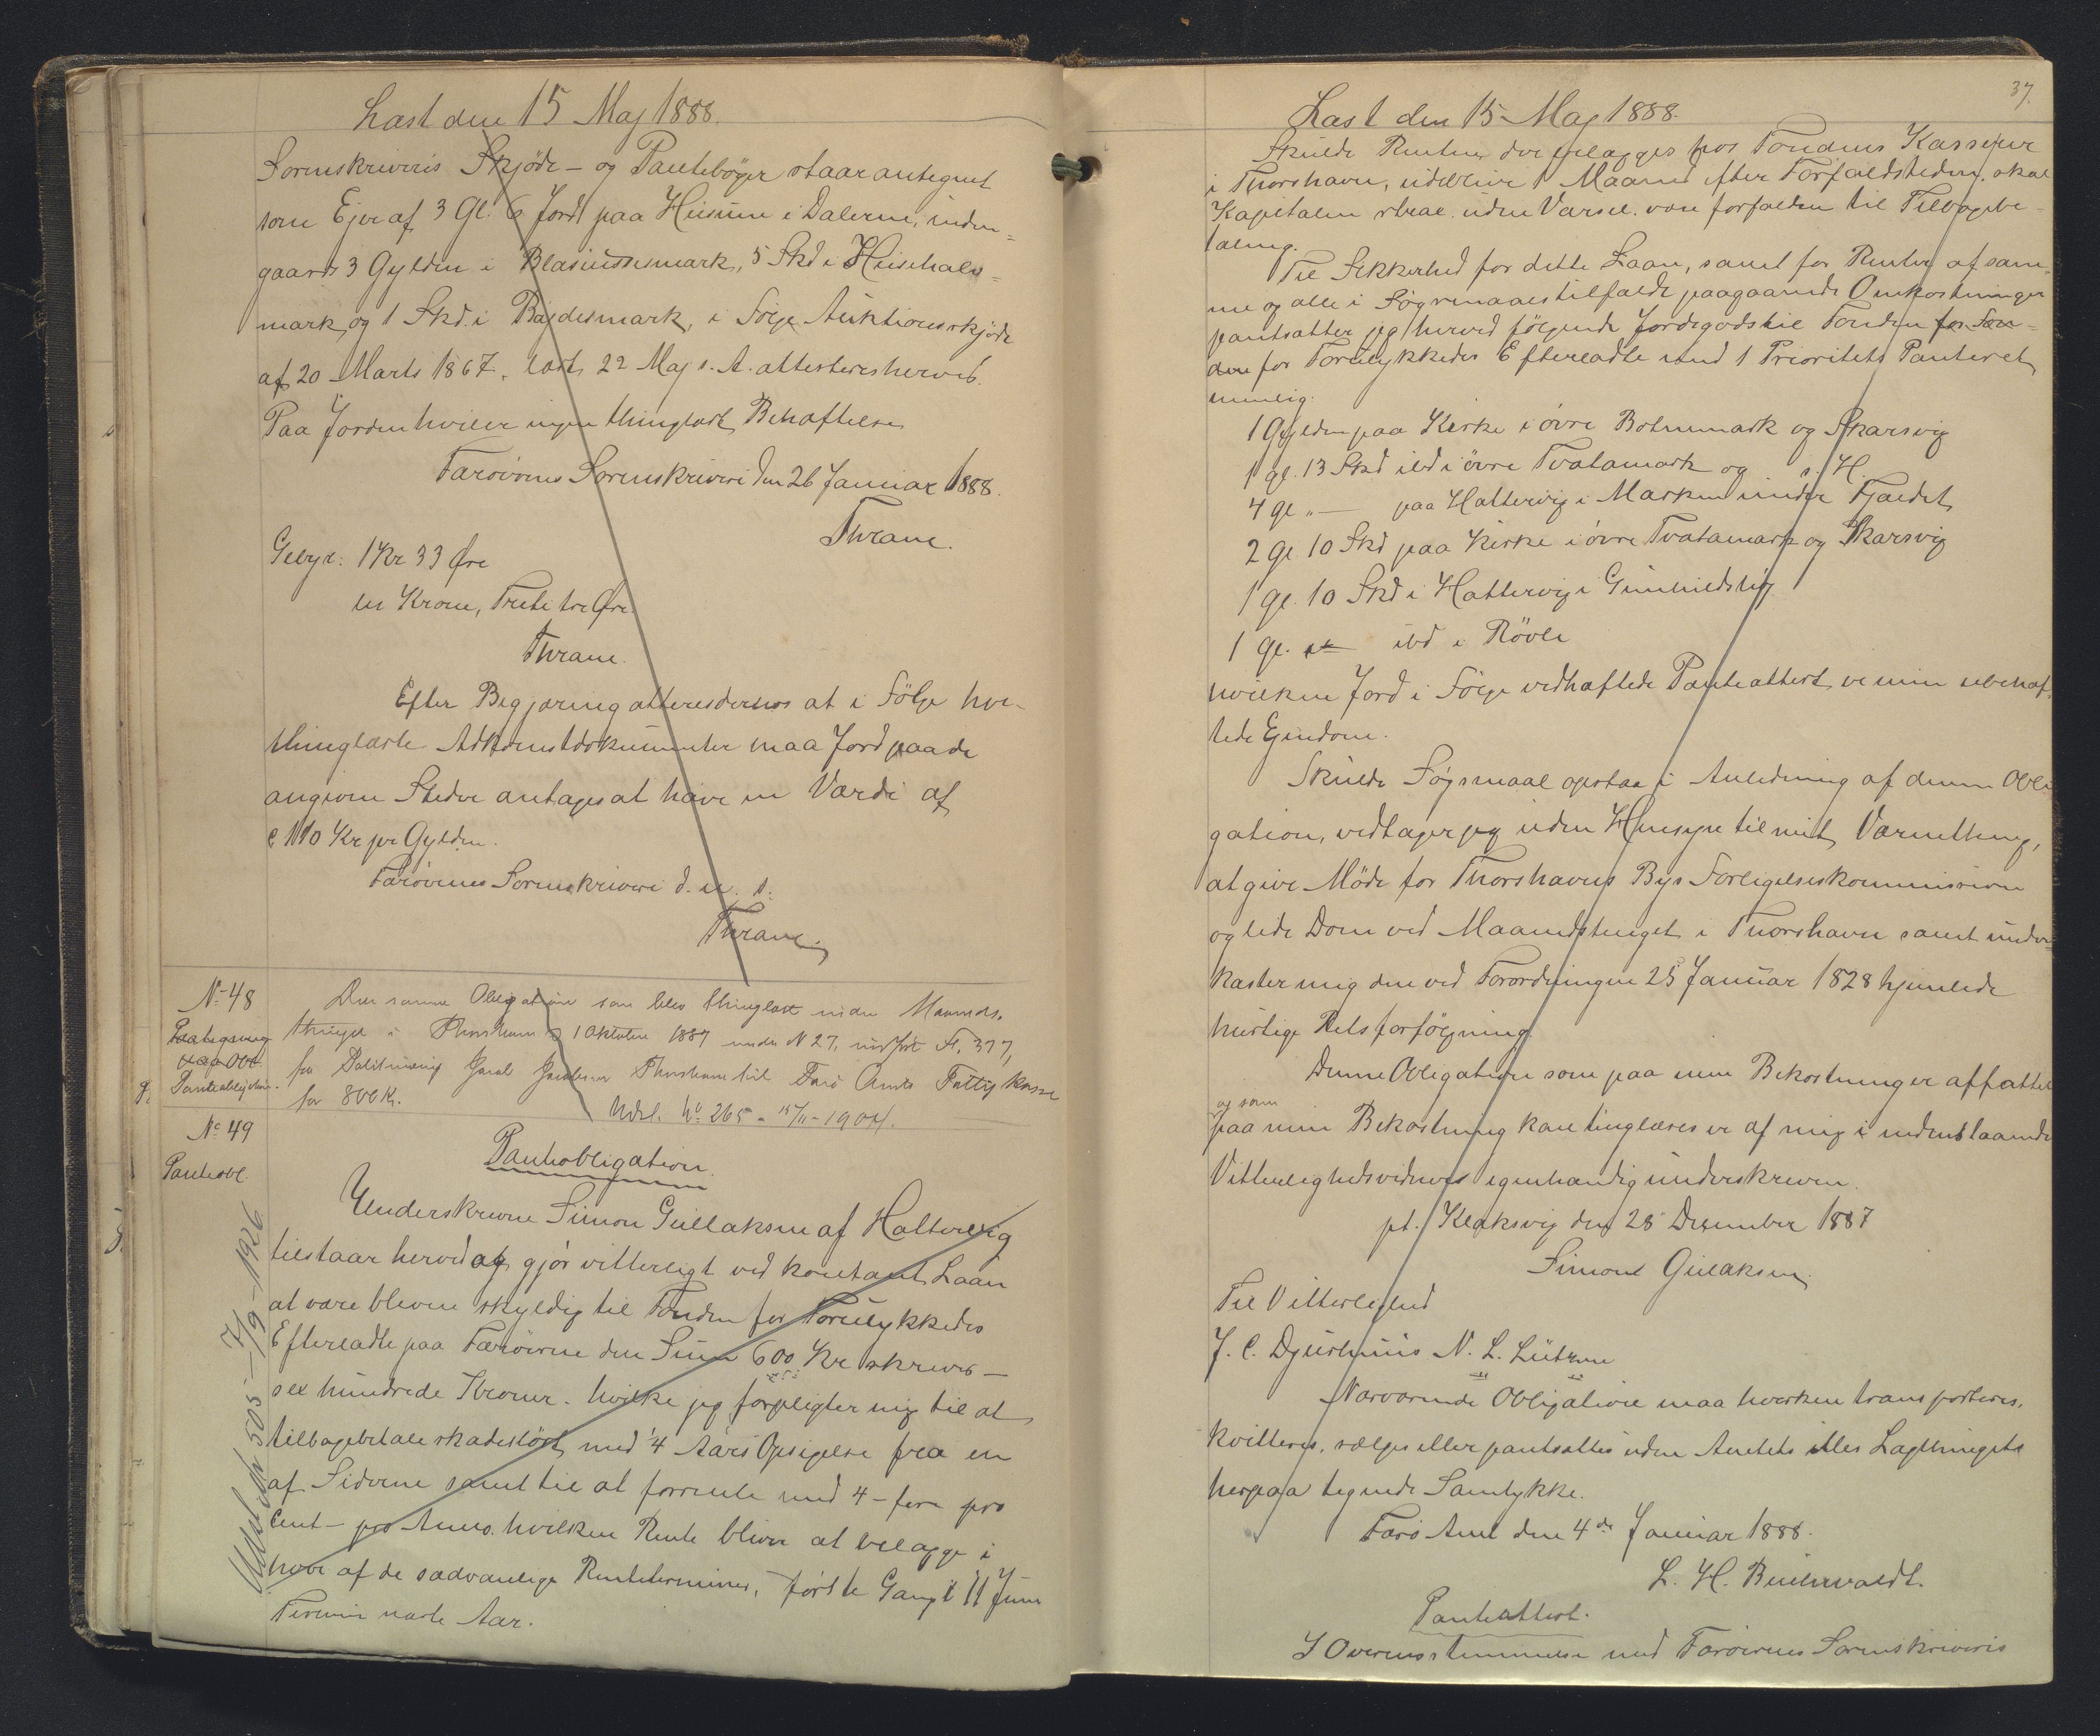 Læst den 15 Maj 1888.
Sorenskriveris Skjöde- og Pantebøger staar antegnet
som Ejer af 3 Gl. 6 Jord paa Husum i Dalerne, inden=
gaards 3 Gylden i Blasiussesmark, 5 Skd i Húsehals=
mark, og 1 Skd. i Bøjdesmark, i Følge Auktionsskjöde
af 20 Marts 1867, læst 22 Maj s. A. attesteres herved.
Paa Jorden hviler ingen thinglæst Behæftelse
Færöernes Sorenskriveri den 26 Januar 1888.
Thrane.
Gebyr: 1 Kr 33 Øre
en Krone, Treti tre Øre
Thrane.
Efter Begjæring attesteres derhos at i Følge her-
thinglæste Adkomstdokumenter maa Jord paa de
angivne Steder antages at have en Værdi af
c 110 Kr pr Gylden.
Færöernes Sorenskriveri d. u. s.
Thrane.
No 48
Paategning
paa Obl
Panteobligation.
Den samme Obligation som blev thinglæst inden Maaneds-
thinget i Thorshavn d 1 Oktober 1887 under N 27, indført Fl. 377,
fra Jacob Jacobsen Thorshavn til Færø Amts Fattigkasse
for 800 Kr.
Udsl. No 265 - 15/11 - 1904.
No 49
Panteobl.
Udslettet 505 - 7/9 - 1926
Panteobligation.
Underskrevne Simon Gullaksen af Hattervig
tilstaar herved og gjør vitterligt ved kontant Laan
at være bleven skyldig til Fonden for Forulykkedes
Efterladte paa Færöerne den Sum 600 Kr skrives -
sex hundrede Kroner - hvilke jeg forpligter mig til at
tilbagebetale skadesløst med 1/4 Aars Opsigelse fra en
af Siderne samt til at forrente med 4 - fire pro
Cent - pro Anno. hvilken Rente bliver at erlægge i
hver af de sædvanlige Renteterminer, første Gang i 11 Juni
Termin næste Aar.
37.
Læst den 15 Maj 1888.
Skulde Renten, der erlægges hos Fondens Kasserer
i Thorshavn, udeblive 1 Maaned efter Forfaldstiden, skal
Kapitalen strax uden Varsel være forfalden til Tilbagebe-
taling.
Til Sikkerhed for dette Laan, samt for Renter af sam-
me og alle i Søgsmaalstilfælde paagaaende Omkostninger
pantsætter jeg herved følgende Jordegods til Fonden for Fon-
den for Forulykkedes Efterladte med 1 Prioritets Panteret
nemlig.
1 Gylden paa Kirke i øvre Botnmark og Skarsvig
1 gl. 13 Skd ibd i øvre Tvatamark og s. H.
4 gl „ — paa Hattervig i Marken under Fjældet
2 gl 10 Skd paa Kirke i øvre Tvatamark og Skarsvig
1 gl. 10 Skd i Hattervig i Gunhildslig
1 gl. ibd i Røvle
hvilken Jord i Følge vedhæftede Panteattest er min ubehæf-
tede Ejendom.
Skulde Søgsmaal opstaa i Anledning af denne Obli
gation, vedtager jeg uden Hensyn til mit Værnething,
at give Møde for Thorshavns Bys Forligelseskommission
og lide Dom ved Maanedstinget i Thorshavn samt under-
kaster mig den ved Forordningen 25 Januar 1828 hjemlede
hurtige Retsforfølgning.
Denne Obligation som paa min Bekostning er affattet
og som
paa min Bekostning kan tinglæses er af mig i nedenstaaende
Vitterlighedsvidners egenhændig underskreven.
pt. Klaksvig den 28 Desember 1887
Simon Gullaksen.
Til Vitterlighed
J. C. Djurhuus N. L. Lützen
Nærværende Obligation maa hverken transporteres,
kvitteres, sælges eller pantsættes uden Amtets eller Lagthingets
herpaa tegnede Samtykke.
Færö Amt den 4de Januar 1888.
L. H. Buchwaldt.
Panteattest.
I Overensstemmelse med Færöernes Sorenskriveris